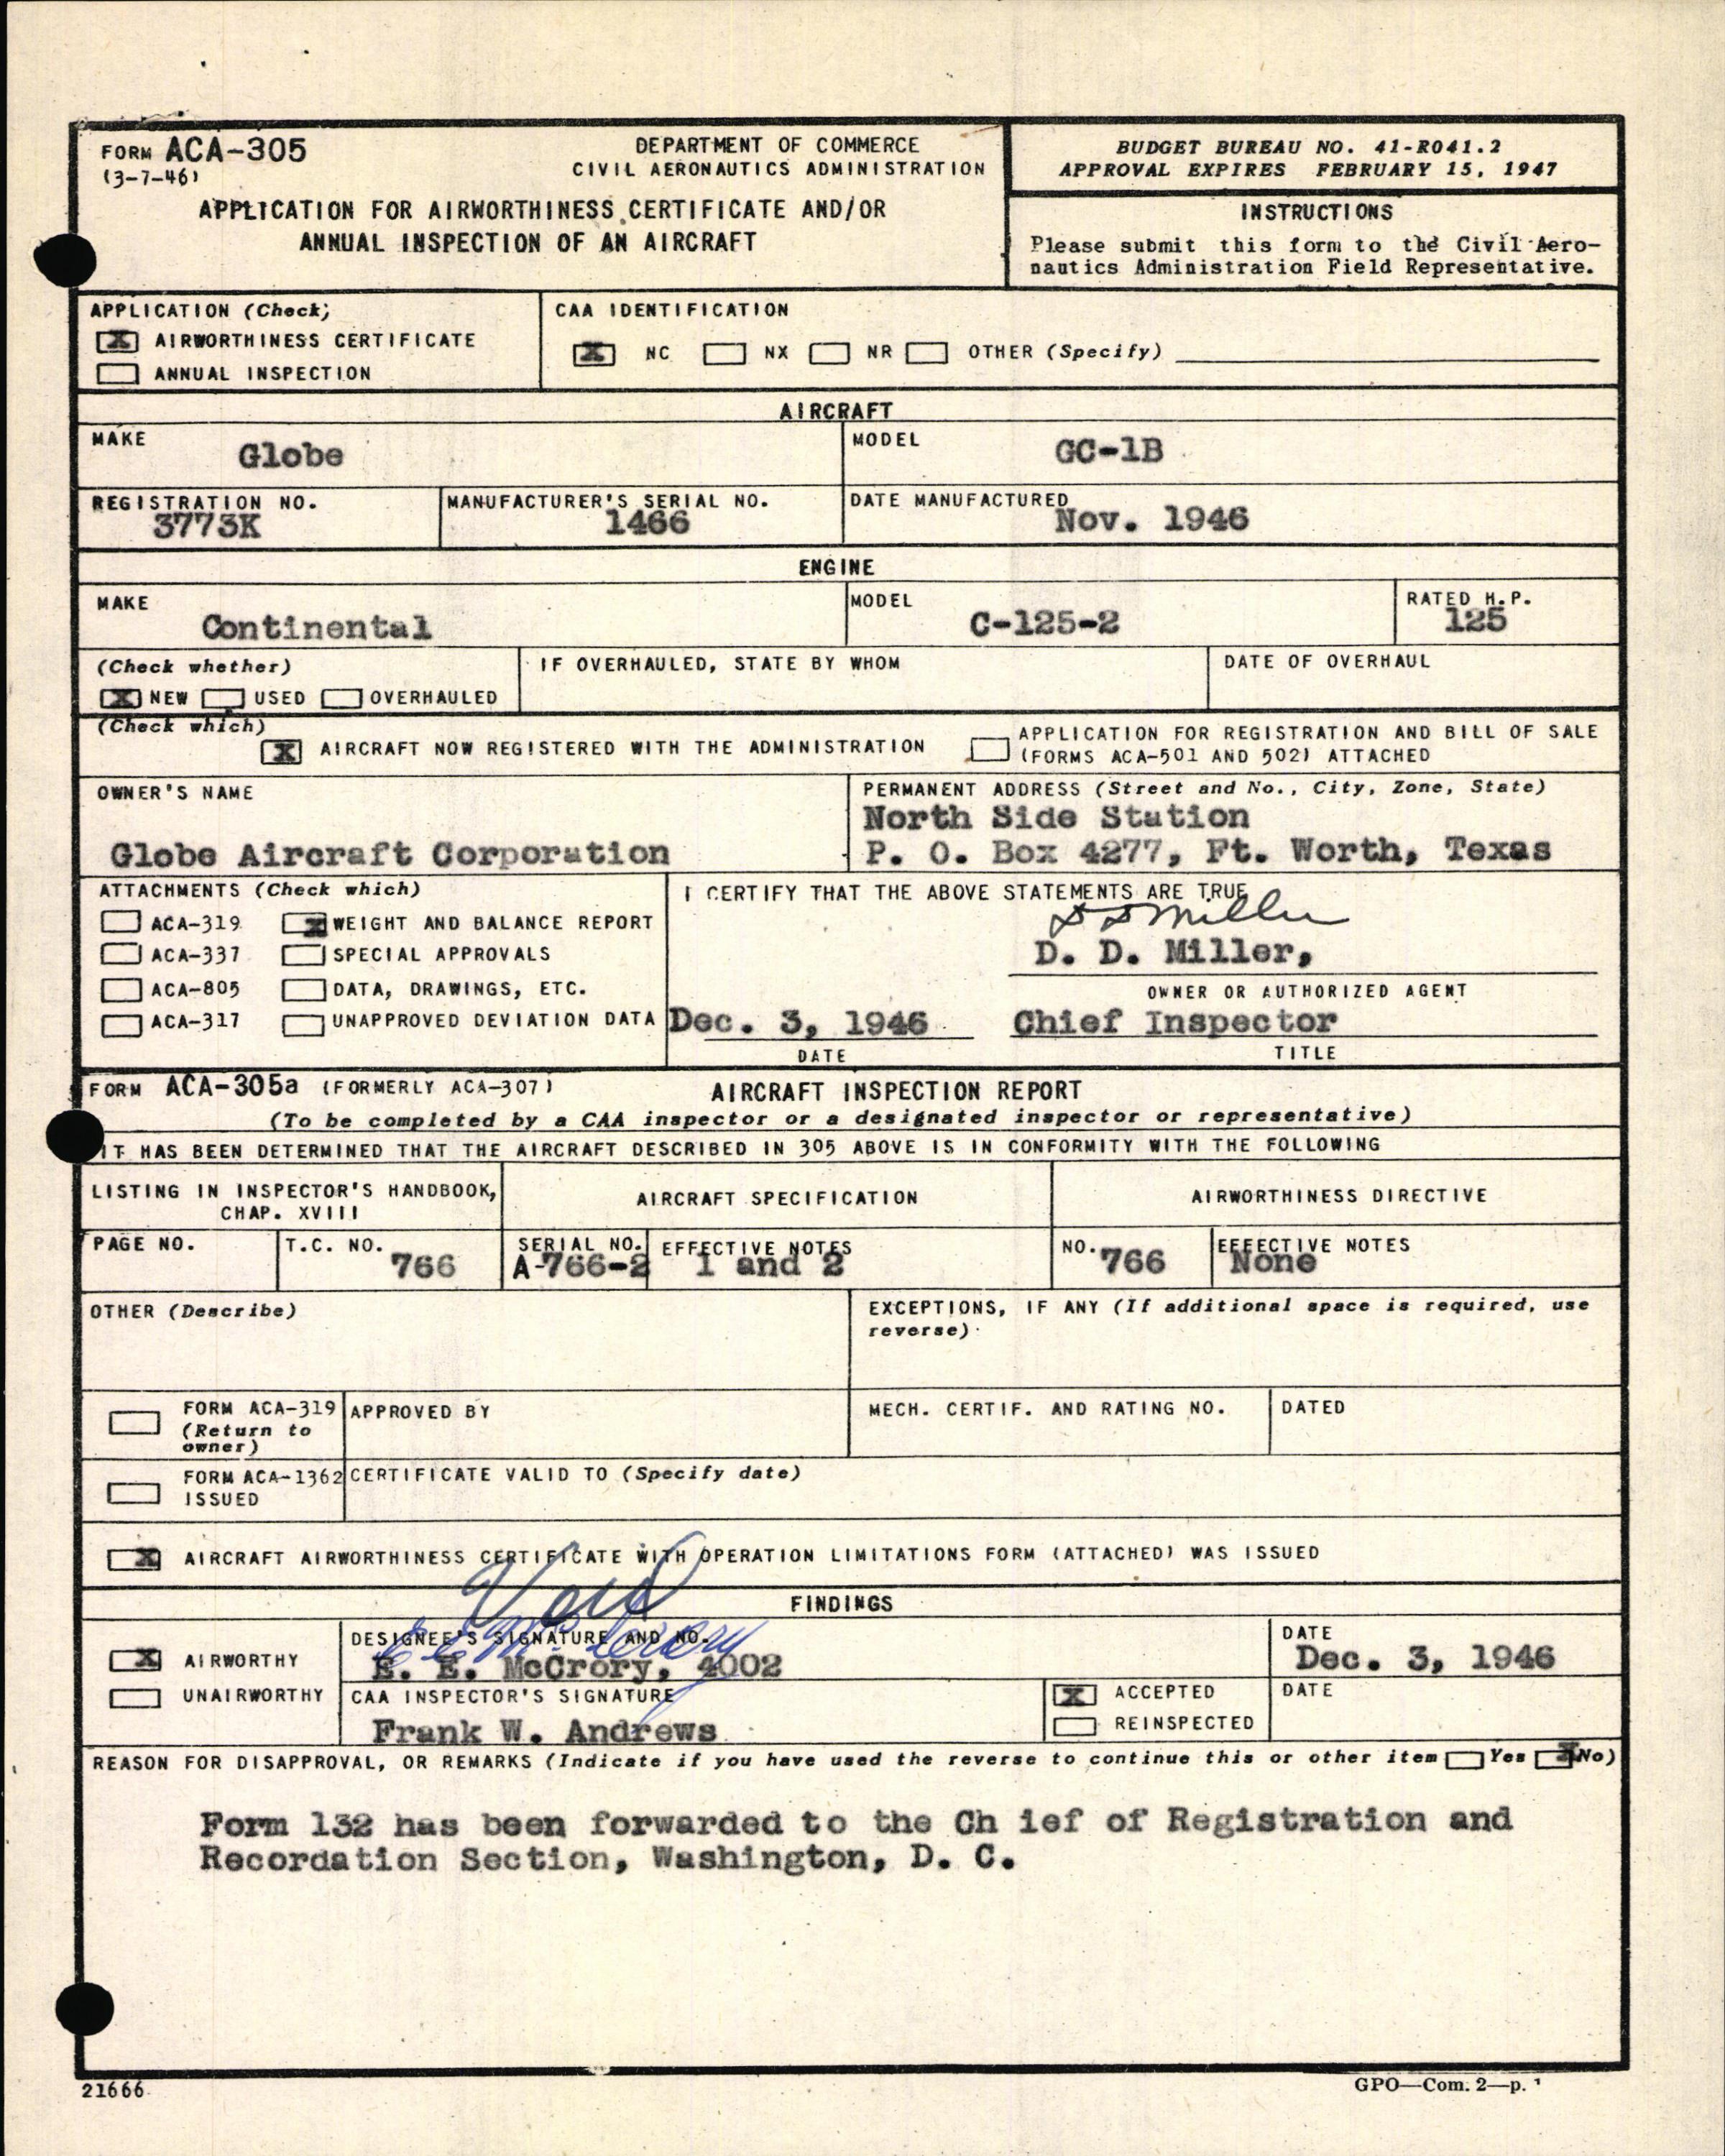 FORM ACA-305
(3-7-46)
DEPARTMENT OF COMMERCE
CIVIL AERONAUTICS ADMINISTRATION
APPLICATION FOR AIRWORTHINESS CERTIFICATE AND/OR
ANNUAL INSPECTION OF AN AIRCRAFT
BUDGET BUREAU NO. 41-R041.2
APPROVAL EXPIRES FEBRUARY 15, 1947
INSTRUCTIONS
Please submit this form to the Civil Aero-
nautics Administration Field Representative.
APPLICATION (Check)
X AIRWORTHINESS CERTIFICATE
ANNUAL INSPECTION
CAA IDENTIFICATION
X NC NX NR OTHER (Specify)
AIRCRAFT
MAKE
Globe
MODEL
GC-1B
REGISTRATION NO.
3773K
MANUFACTURER'S SERIAL NO.
1466
DATE MANUFACTURED
Nov. 1946
ENGINE
MAKE
Continental
MODEL
C-125-2
RATED H.P.
125
(Check whether)
X NEW USED OVERHAULED
IF OVERHAULED, STATE BY WHOM
DATE OF OVERHAUL
(Check which)
X AIRCRAFT NOW REGISTERED WITH THE ADMINISTRATION
APPLICATION FOR REGISTRATION AND BILL OF SALE
(FORMS ACA-501 AND 502) ATTACHED
OWNER'S NAME
Globe Aircraft Corporation
PERMANENT ADDRESS (Street and No., City, Zone, State)
North Side Station
P. O. Box 4277, Ft. Worth, Texas
ATTACHMENTS (Check which)
ACA-319 X WEIGHT AND BALANCE REPORT
ACA-337 SPECIAL APPROVALS
ACA-805 DATA, DRAWINGS, ETC.
ACA-317 UNAPPROVED DEVIATION DATA
I CERTIFY THAT THE ABOVE STATEMENTS ARE TRUE
D D Miller
D. D. Miller,
OWNER OR AUTHORIZED AGENT
Dec. 3, 1946 Chief Inspector
DATE TITLE
FORM ACA-305a (FORMERLY ACA-307) AIRCRAFT INSPECTION REPORT
(To be completed by a CAA inspector or a designated inspector or representative)
IT HAS BEEN DETERMINED THAT THE AIRCRAFT DESCRIBED IN 305 ABOVE IS IN CONFORMITY WITH THE FOLLOWING
LISTING IN INSPECTOR'S HANDBOOK,
CHAP. XVIII
AIRCRAFT SPECIFICATION
AIRWORTHINESS DIRECTIVE
PAGE NO.
T.C. NO.
766
SERIAL NO.
A-766-2
EFFECTIVE NOTES
1 and 2
NO.
766
EFFECTIVE NOTES
None
OTHER (Describe)
EXCEPTIONS, IF ANY (If additional space is required, use
reverse)
FORM ACA-319
(Return to
owner)
APPROVED BY
MECH. CERTIF. AND RATING NO.
DATED
FORM ACA-1362
ISSUED
CERTIFICATE VALID TO (Specify date)
X AIRCRAFT AIRWORTHINESS CERTIFICATE WITH OPERATION LIMITATIONS FORM (ATTACHED) WAS ISSUED
Void
FINDINGS
X AIRWORTHY
UNAIRWORTHY
DESIGNEE'S SIGNATURE AND NO.
E E McCrory
E. E. McCrory, 4002
DATE
Dec. 3, 1946
CAA INSPECTOR'S SIGNATURE
Frank W. Andrews
X ACCEPTED
REINSPECTED
DATE
REASON FOR DISAPPROVAL, OR REMARKS (Indicate if you have used the reverse to continue this or other item Yes X No)
Form 132 has been forwarded to the Ch ief of Registration and
Recordation Section, Washington, D. C.
21666
GPO—Com. 2—p.